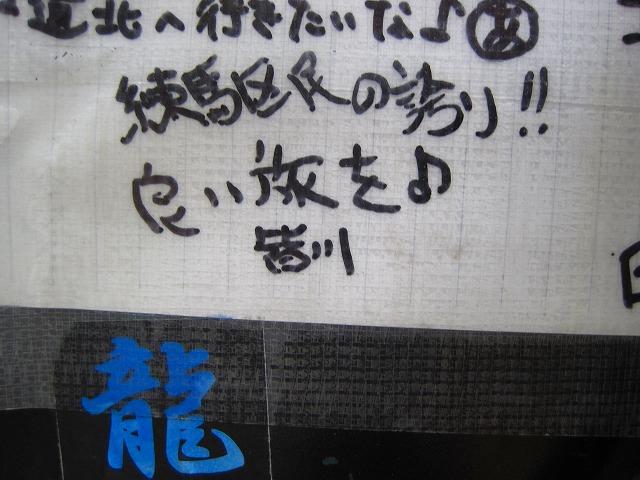 道北へ行きたいな♪あ
練馬区民の誇り!!
良い旅を♪
皆川
龍